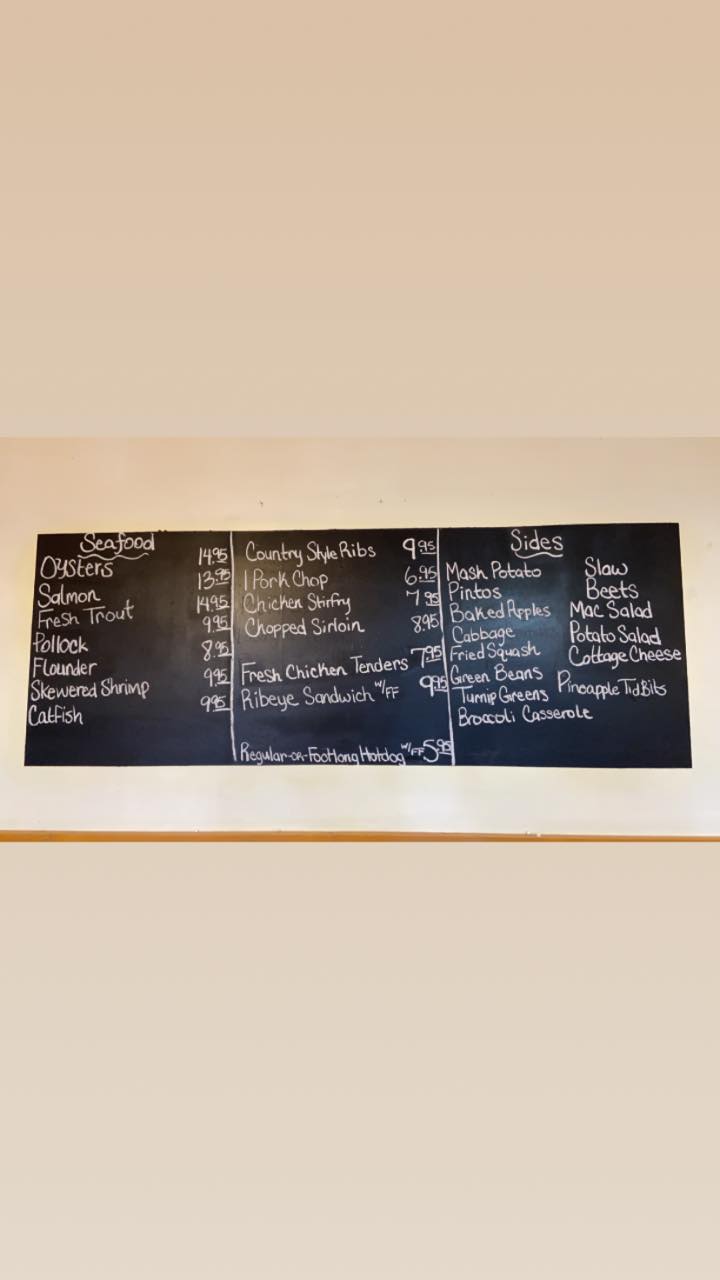 Seafood
Oysters 14.95
Salmon 13.95
Fresh Trout 14.95
Pollock 9.95
Flounder 8.95
Skewered Shrimp 9.95
Catfish 9.95
Country Style Ribs 9.95
1 Pork Chop 6.95
Chicken Stirfry 7.95
Chopped Sirloin 8.95
Fresh Chicken Tenders 7.95
Ribeye Sandwich w/FF 9.95
Regular-or-Footlong Hotdog w/FF 5.95
Sides
Mash Potato
Pintos
Baked Apples
Cabbage
Fried Squash
Green Beans
Turnip Greens
Broccoli Casserole
Slaw
Beets
Mac Salad
Potato Salad
Cottage Cheese
Pineapple TidBits